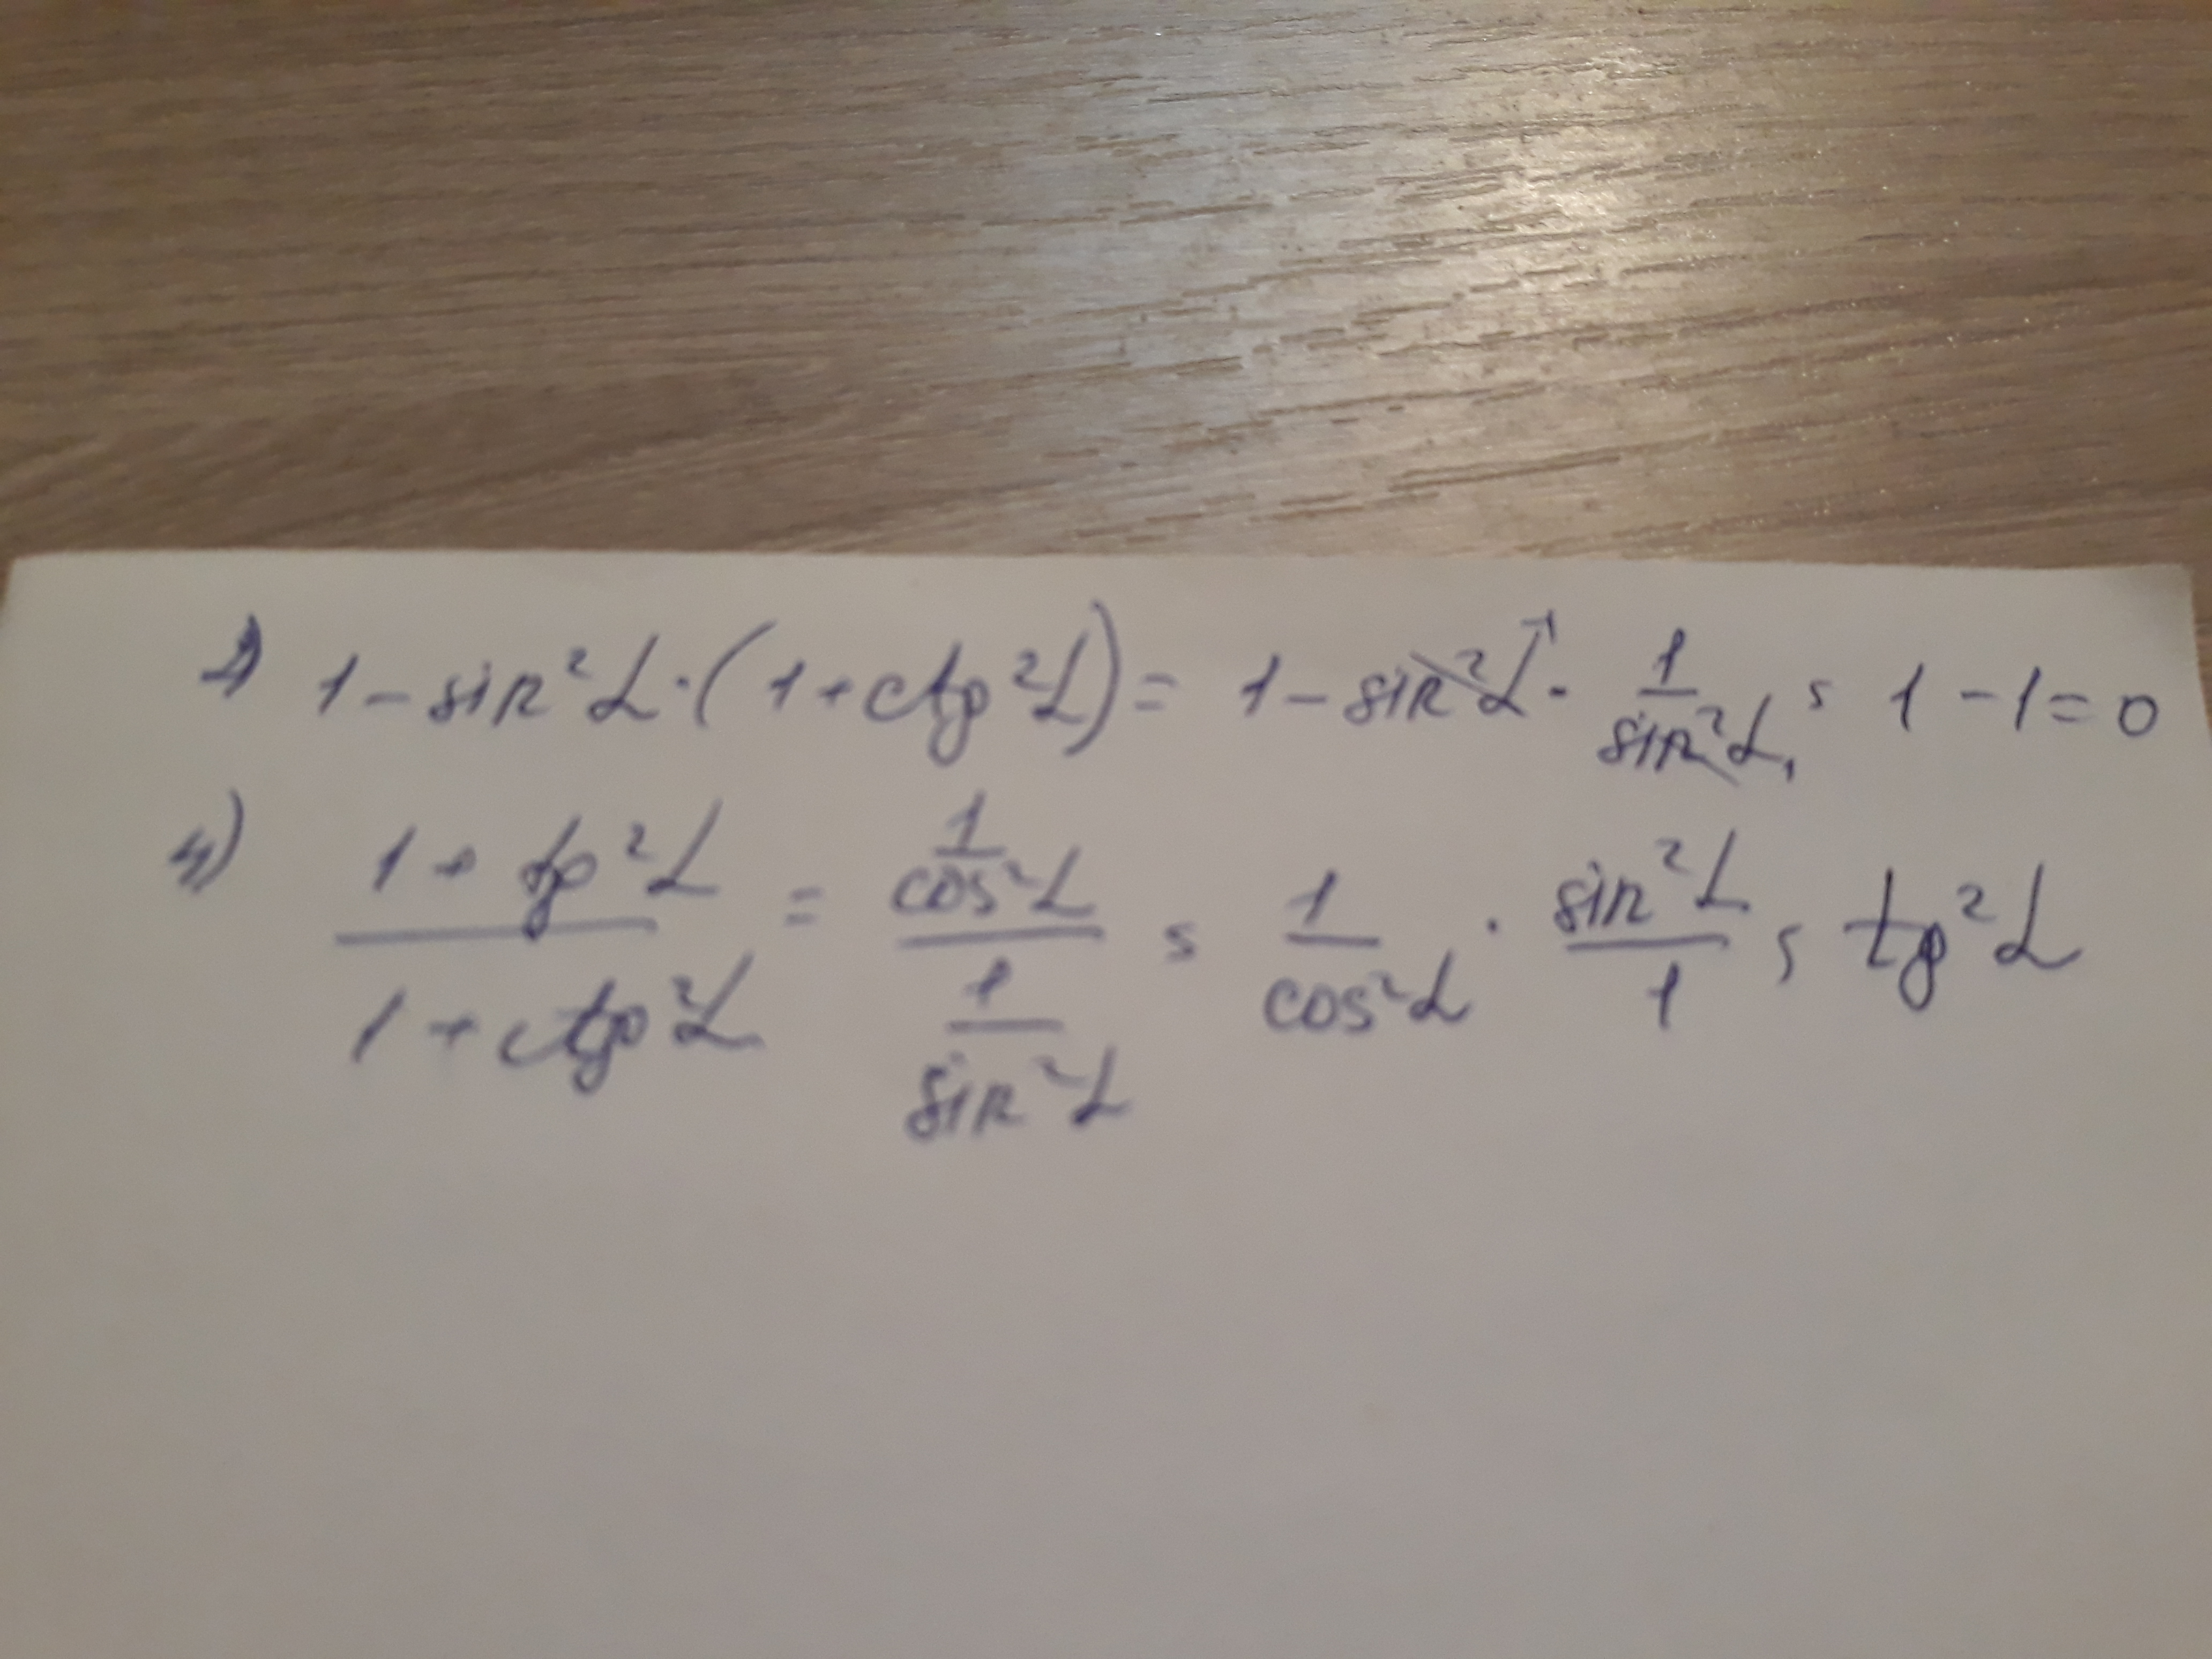 2) 1 - sin²α · (1 + ctg²α) = 1 - sin²α¹ · 1/sin²α₁ = 1 - 1 = 0
4) (1 + tg²α)/(1 + ctg²α) = (1/cos²α)/(1/sin²α) = 1/cos²α · sin²α/1 = tg²α